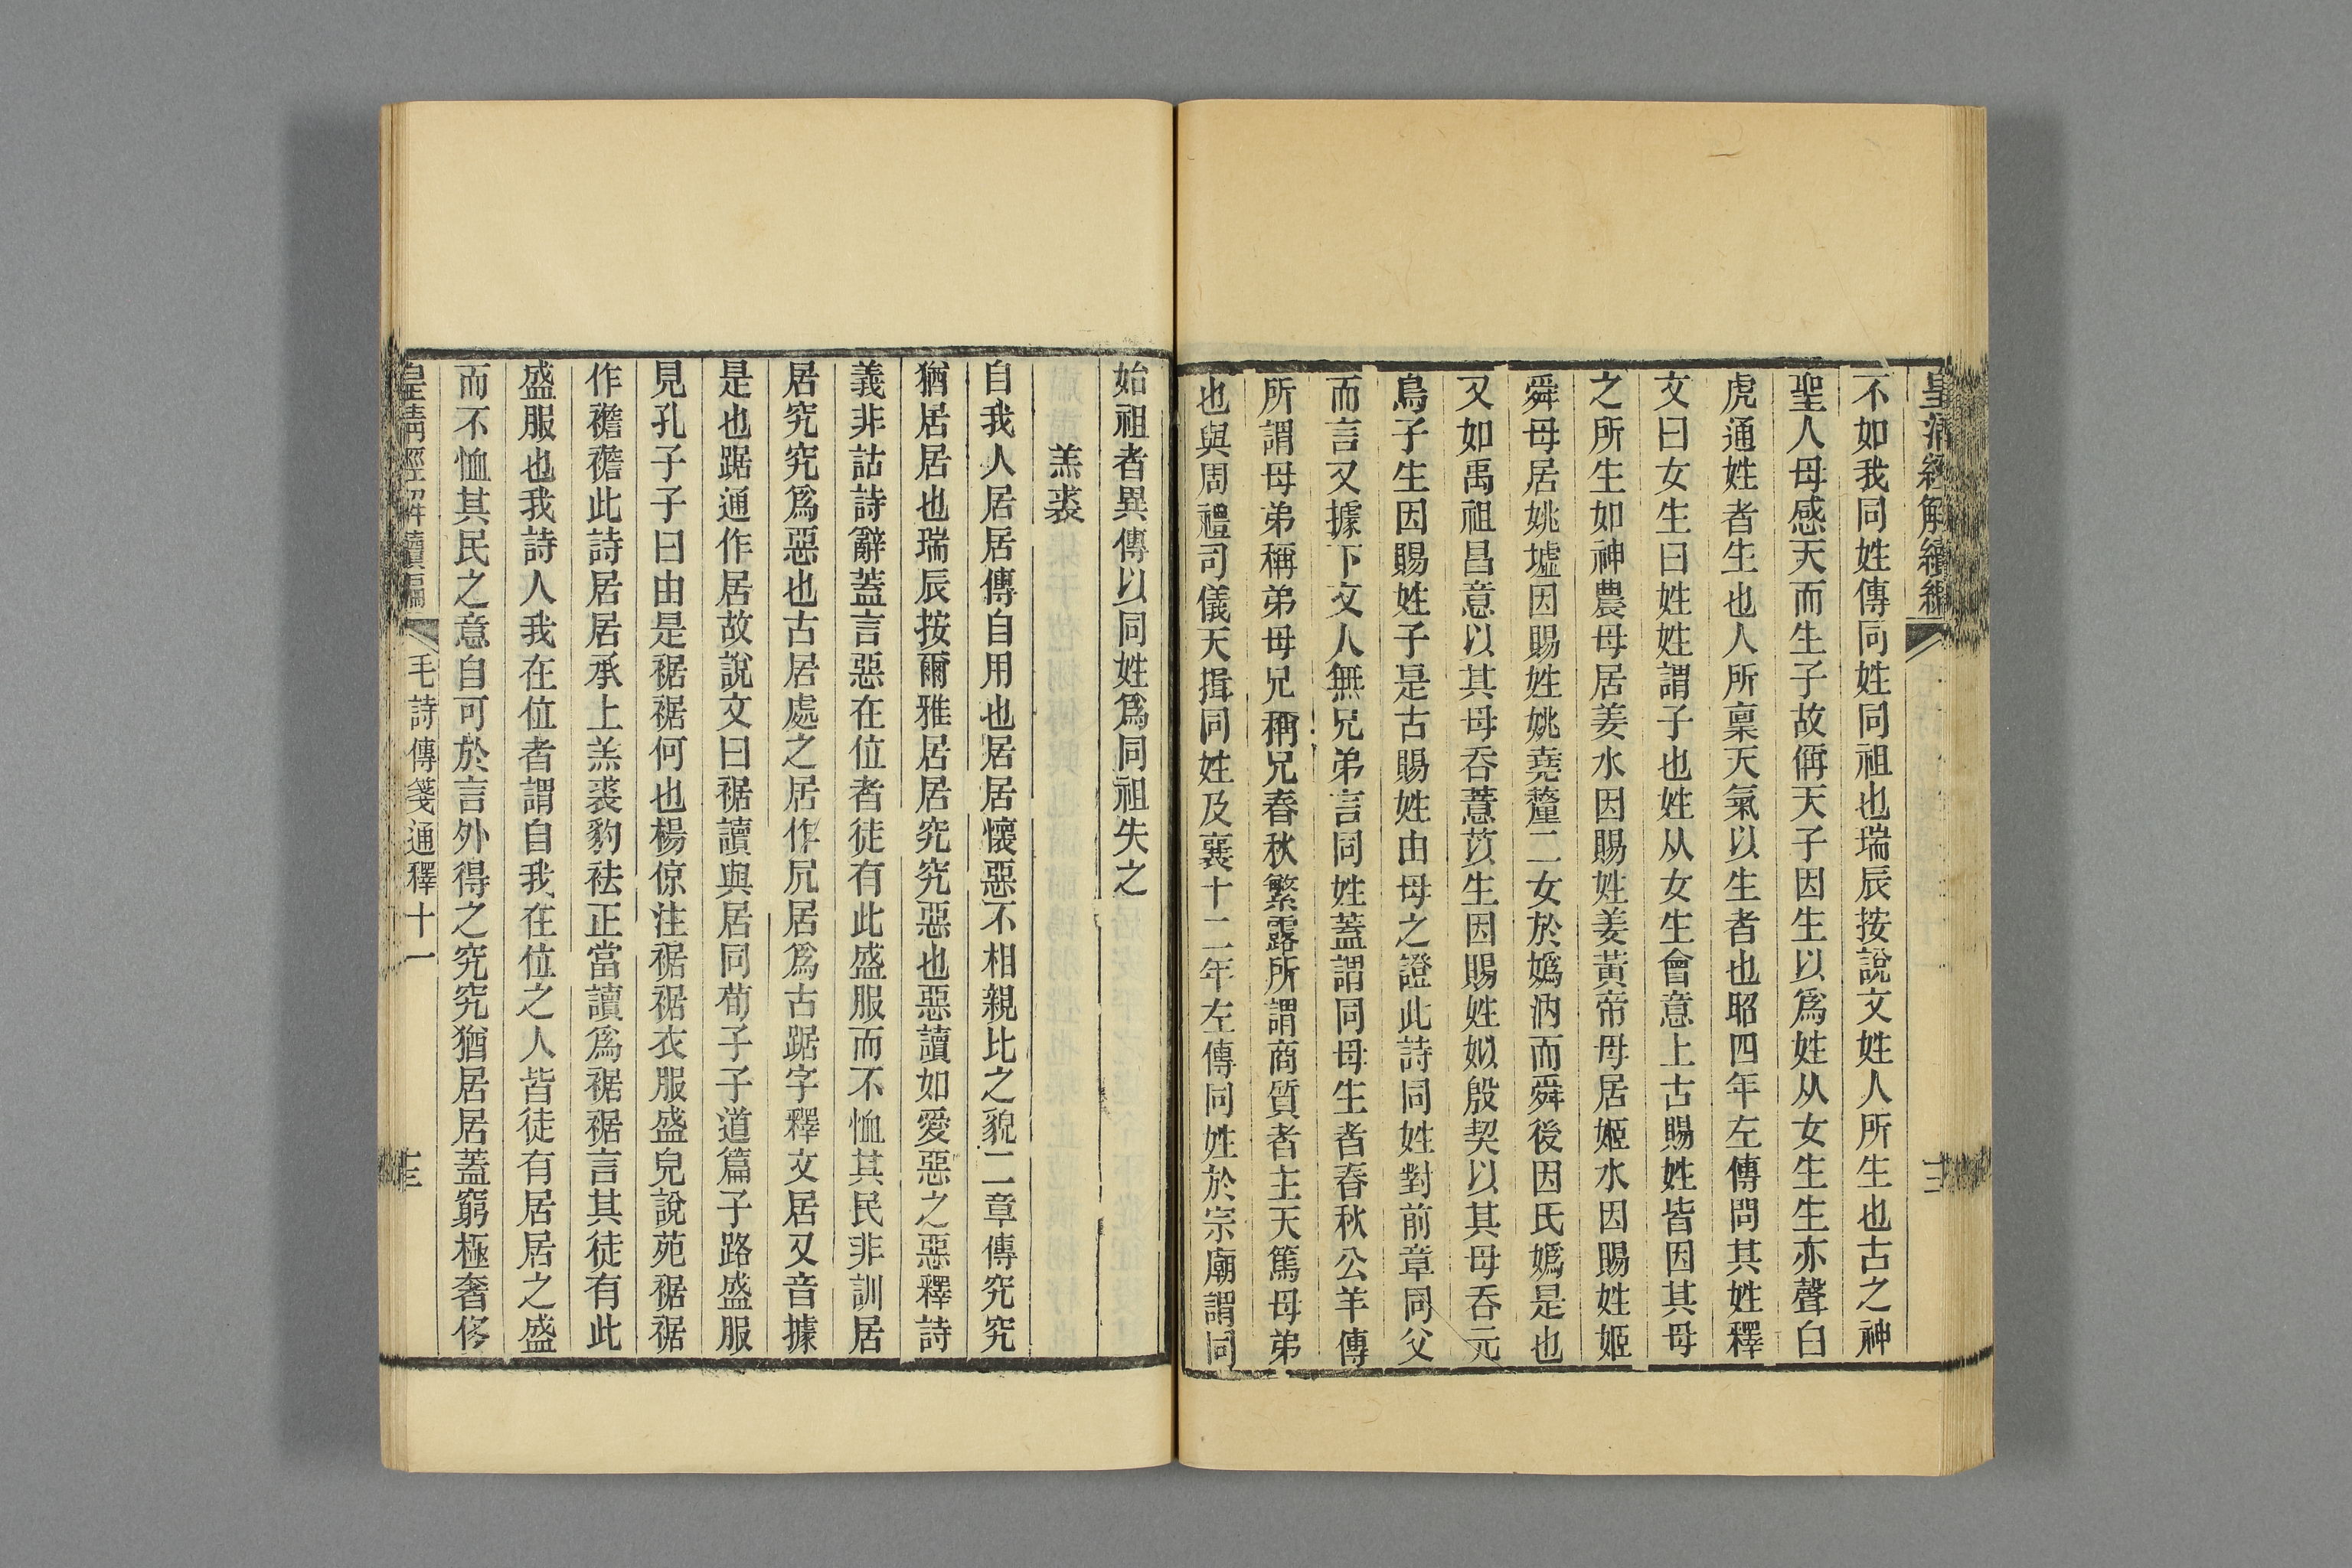 皇清經解續編
十二
不如我同姓傳同姓同祖也瑞辰按說文姓人所生也古之神
聖人母感天而生子故偁天子因生以爲姓从女生生亦聲白
虎通姓者生也人所稟天氣以生者也昭四年左傳問其姓釋
文曰女生曰姓姓謂子也姓从女生會意上古賜姓皆因其母
之所生如神農母居姜水因賜姓姜黃帝母居姬水因賜姓姬
舜母居姚墟因賜姓姚堯釐二女於嬀汭而舜後因氏嬀是也
又如禹祖昌意以其母吞薏苡生因賜姓姒殷契以其母吞元
鳥子生因賜姓子是古賜姓由母之證此詩同姓對前章同父
而言又據下文人無兄弟言同姓蓋謂同母生者春秋公羊傳
所謂母弟稱弟母兄稱兄春秋繁露所謂商質者主天篤母弟
也與周禮司儀天揖同姓及襄十二年左傳同姓於宗廟謂同
始祖者異傳以同姓爲同祖失之
羔裘
自我人居居傳自用也居居懷惡不相親比之貌二章傳究究
猶居居也瑞辰按爾雅居居究究惡也惡讀如愛惡之惡釋詩
義非詁詩辭蓋言惡在位者徒有此盛服而不恤其民非訓居
居究究爲惡也古居處之居作凥居爲古踞字釋文居又音據
是也踞通作居故說文曰裾讀與居同荀子子道篇子路盛服
見孔子子曰由是裾裾何也楊倞注裾裾衣服盛皃說苑裾裾
作襜襜此詩居居承上羔裘豹袪正當讀爲裾裾言其徒有此
盛服也我詩人我在位者謂自我在位之人皆徒有居居之盛
而不恤其民之意自可於言外得之究究猶居居蓋窮極奢侈
皇清經解續編
毛詩傳箋通釋十一
十三